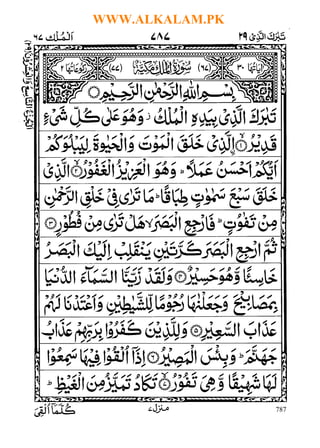 WWW.ALKALAM.PK
تَبٰرَكَ الَّذِیْ ٢٩
٧٨٧
اَلْمُلْك ٦٧
اٰیَاتُهَا ٣٠
(٦٧) سُوْرَةُ الْمُلْكِ مَكِّیَّةٌ (٧٧)
رُكُوْعَاتُهَا ٢
بِسْمِ اللّٰهِ الرَّحْمٰنِ الرَّحِیْمِ
تَبٰرَكَ الَّذِیْ بِیَدِهِ الْمُلْكُ ؗ وَهُوَ عَلٰی كُلِّ شَیْءٍ
قَدِیْرُ ۙ۝١ الَّذِیْ خَلَقَ الْمَوْتَ وَالْحَیٰوةَ لِیَبْلُوَكُمْ
اَیُّكُمْ اَحْسَنُ عَمَلًا ؕ وَهُوَ الْعَزِیْزُ الْغَفُوْرُ ۙ۝٢ الَّذِیْ
خَلَقَ سَبْعَ سَمٰوٰتٍ طِبَاقًا ؕ مَا تَرٰی فِیْ خَلْقِ الرَّحْمٰنِ
مِنْ تَفٰوُتٍ ؕ فَارْجِعِ الْبَصَرَ ۙ هَلْ تَرٰی مِنْ فُطُوْرٍ ۝٣
ثُمَّ ارْجِعِ الْبَصَرَ كَرَّتَیْنِ یَنْقَلِبْ اِلَیْكَ الْبَصَرُ
خَاسِئًا وَّهُوَ حَسِیْرٌ ۝٤ وَلَقَدْ زَیَّنَّا السَّمَآءَ الدُّنْیَا
بِمَصَابِیْحَ وَجَعَلْنٰهَا رُجُوْمًا لِّلشَّیٰطِیْنِ وَاَعْتَدْنَا لَهُمْ
عَذَابَ السَّعِیْرِ ۝٥ وَلِلَّذِیْنَ كَفَرُوْا بِرَبِّهِمْ عَذَابُ
جَهَنَّمَ ؕ وَبِئْسَ الْمَصِیْرُ ۝٦ اِذَاۤ اُلْقُوْا فِیْهَا سَمِعُوْا
لَهَا شَهِیْقًا وَّهِیَ تَفُوْرُ ۙ۝٧ تَكَادُ تَمَیَّزُ مِنَ الْغَیْظِ ؕ
كُلَّمَاۤ اُلْقِیَ
منزل ٧
787